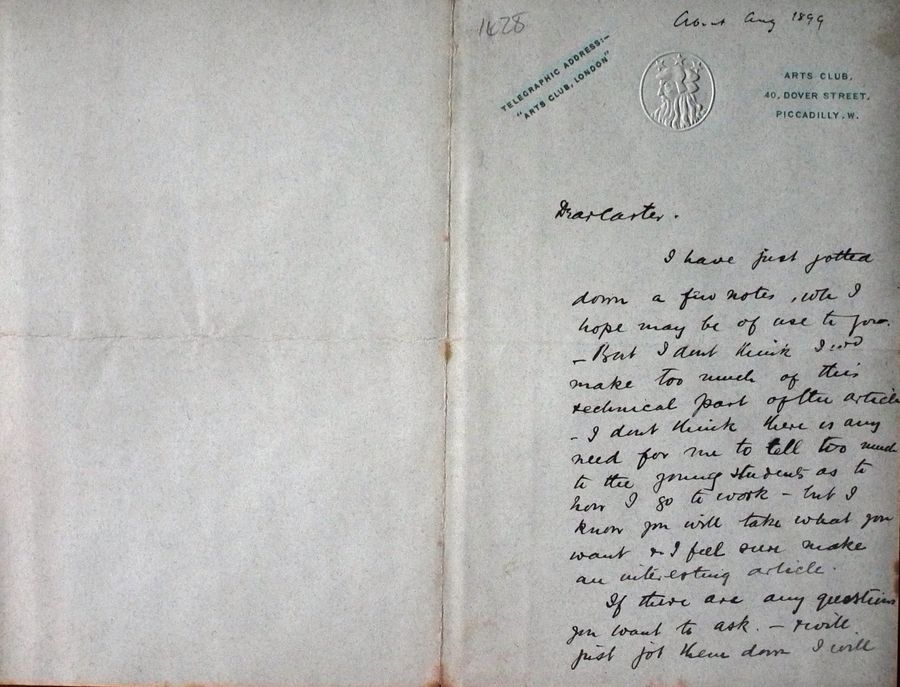 1628
Abt Aug 1899
TELEGRAPHIC ADDRESS:-
"ARTS CLUB, LONDON"
ARTS CLUB,
40, DOVER STREET,
PICCADILLY. W.
Dear Carter.
I have just jotted
down a few notes, wh I
hope may be of use to you.
- But I dont think I wd
make too much of this
technical part of the article
- I dont think there is any
need for me to tell too much
to the young students as to
how I go to work - but I
know you will take what you
want & I feel sure make
an interesting article.
If there are any questions
you want to ask. - & will
just jot them down I will